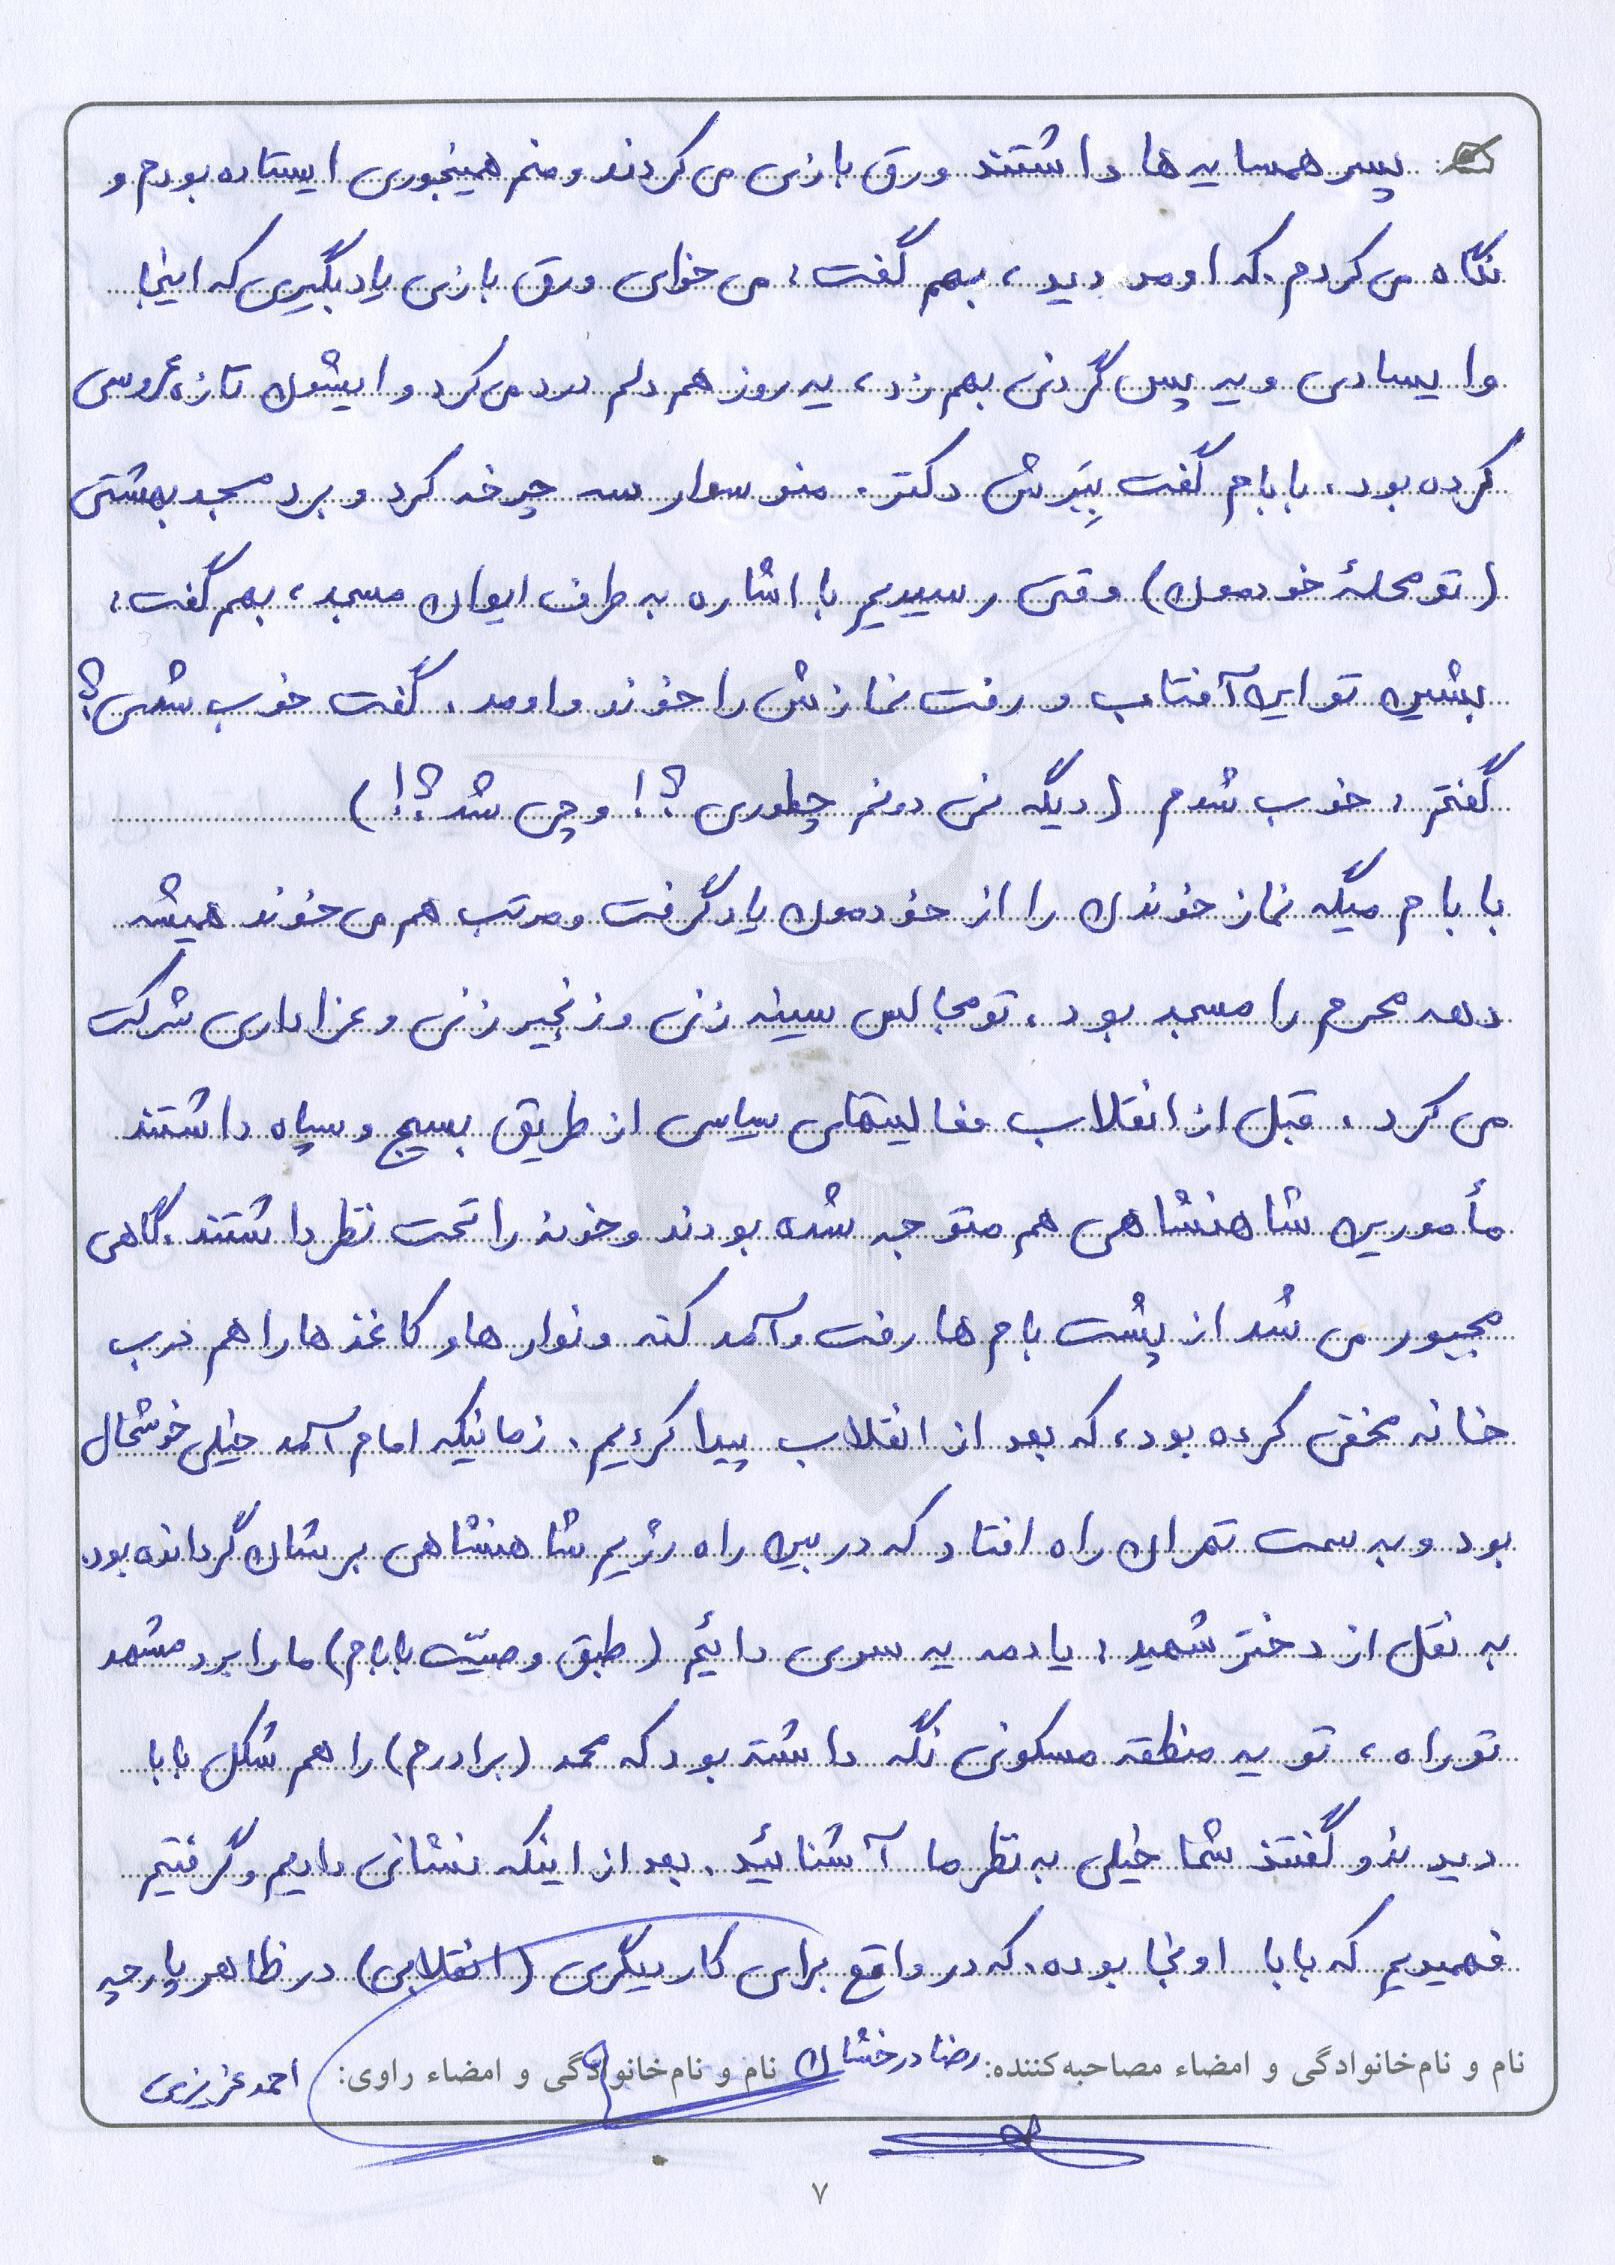 پسر همسایه ها داشتند ورق بازی می کردند و منم همینجوری ایستاده بودم و
نگاه می کردم. که اومد دید، بهم گفت: می خوای ورق بازی یاد بگیری که اینجا
وایسادی و یه پس گردنی بهم زد، یه روز هم دلم درد می کرد و ایشون تازه عروسی
کرده بود. بابام گفت بِبَرش دکتر. منو سوار سه چرخه کرد و برد مسجد بهشتی
(تو محلهٔ خودمون) وقتی رسیدیم با اشاره به طرف ایوان مسجد، بهم گفت:
بشین تو این آفتاب و رفت نمازش را خوند و اومد. گفت خوب شدی؟
گفتم: خوب شدم (دیگه نمی دونم چطوری؟! و چی شد؟!)
بابام میگه نماز خوندن را از خودمون یاد گرفت و مرتب هم می خوند همیشه
دهه محرم را مسجد بود. تو مجالس سینه زنی و زنجیر زنی و عزاداری شرکت
می کرد. قبل از انقلاب فعالیتهای سیاسی از طریق بسیج و سپاه داشتند
مأمورین شاهنشاهی هم متوجه شده بودند و خونه را تحت نظر داشتند. گاهی
مجبور می شد از پشت بام ها رفت و آمد کنه و نوار ها و کاغذ ها را هم درب
خانه مخفی کرده بود، که بعد از انقلاب پیدا کردیم. زمانیکه امام آمد خیلی خوشحال
بود و به سمت تهران راه افتاد که در بین راه رژیم شاهنشاهی برشان گردانده بود.
به نقل از دختر شهید: یادمه یه سری دائیم (طبق وصیّت بابام) ما را برد مشهد
تو راه، تو یه منطقه مسکونی نگه داشته بود که محمد (برادرم) را هم شکل بابا
دیدند و گفتند شما خیلی به نظر ما آشنائید. بعد از اینکه نشانی دادیم و گرفتیم
فهمیدیم که بابا اونجا بوده. که در واقع برای کار دیگری (انقلابی) در ظاهر پارچه
نام و نام‌خانوادگی و امضاء مصاحبه‌کننده: رضا درخشان نام و نام‌خانوادگی و امضاء راوی: احمد عزیزی
۷